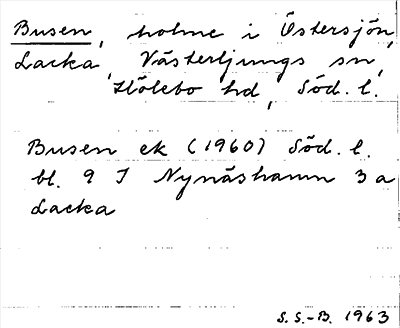 Busen, holme i Östersjön,
Lacka, Västerljungs sn,
Hölebo hd, Söd. l.
Busen ek (1960) Söd. l.
bl. 9 I Nynäshamn 3 a
Lacka
S.S.-B. 1963